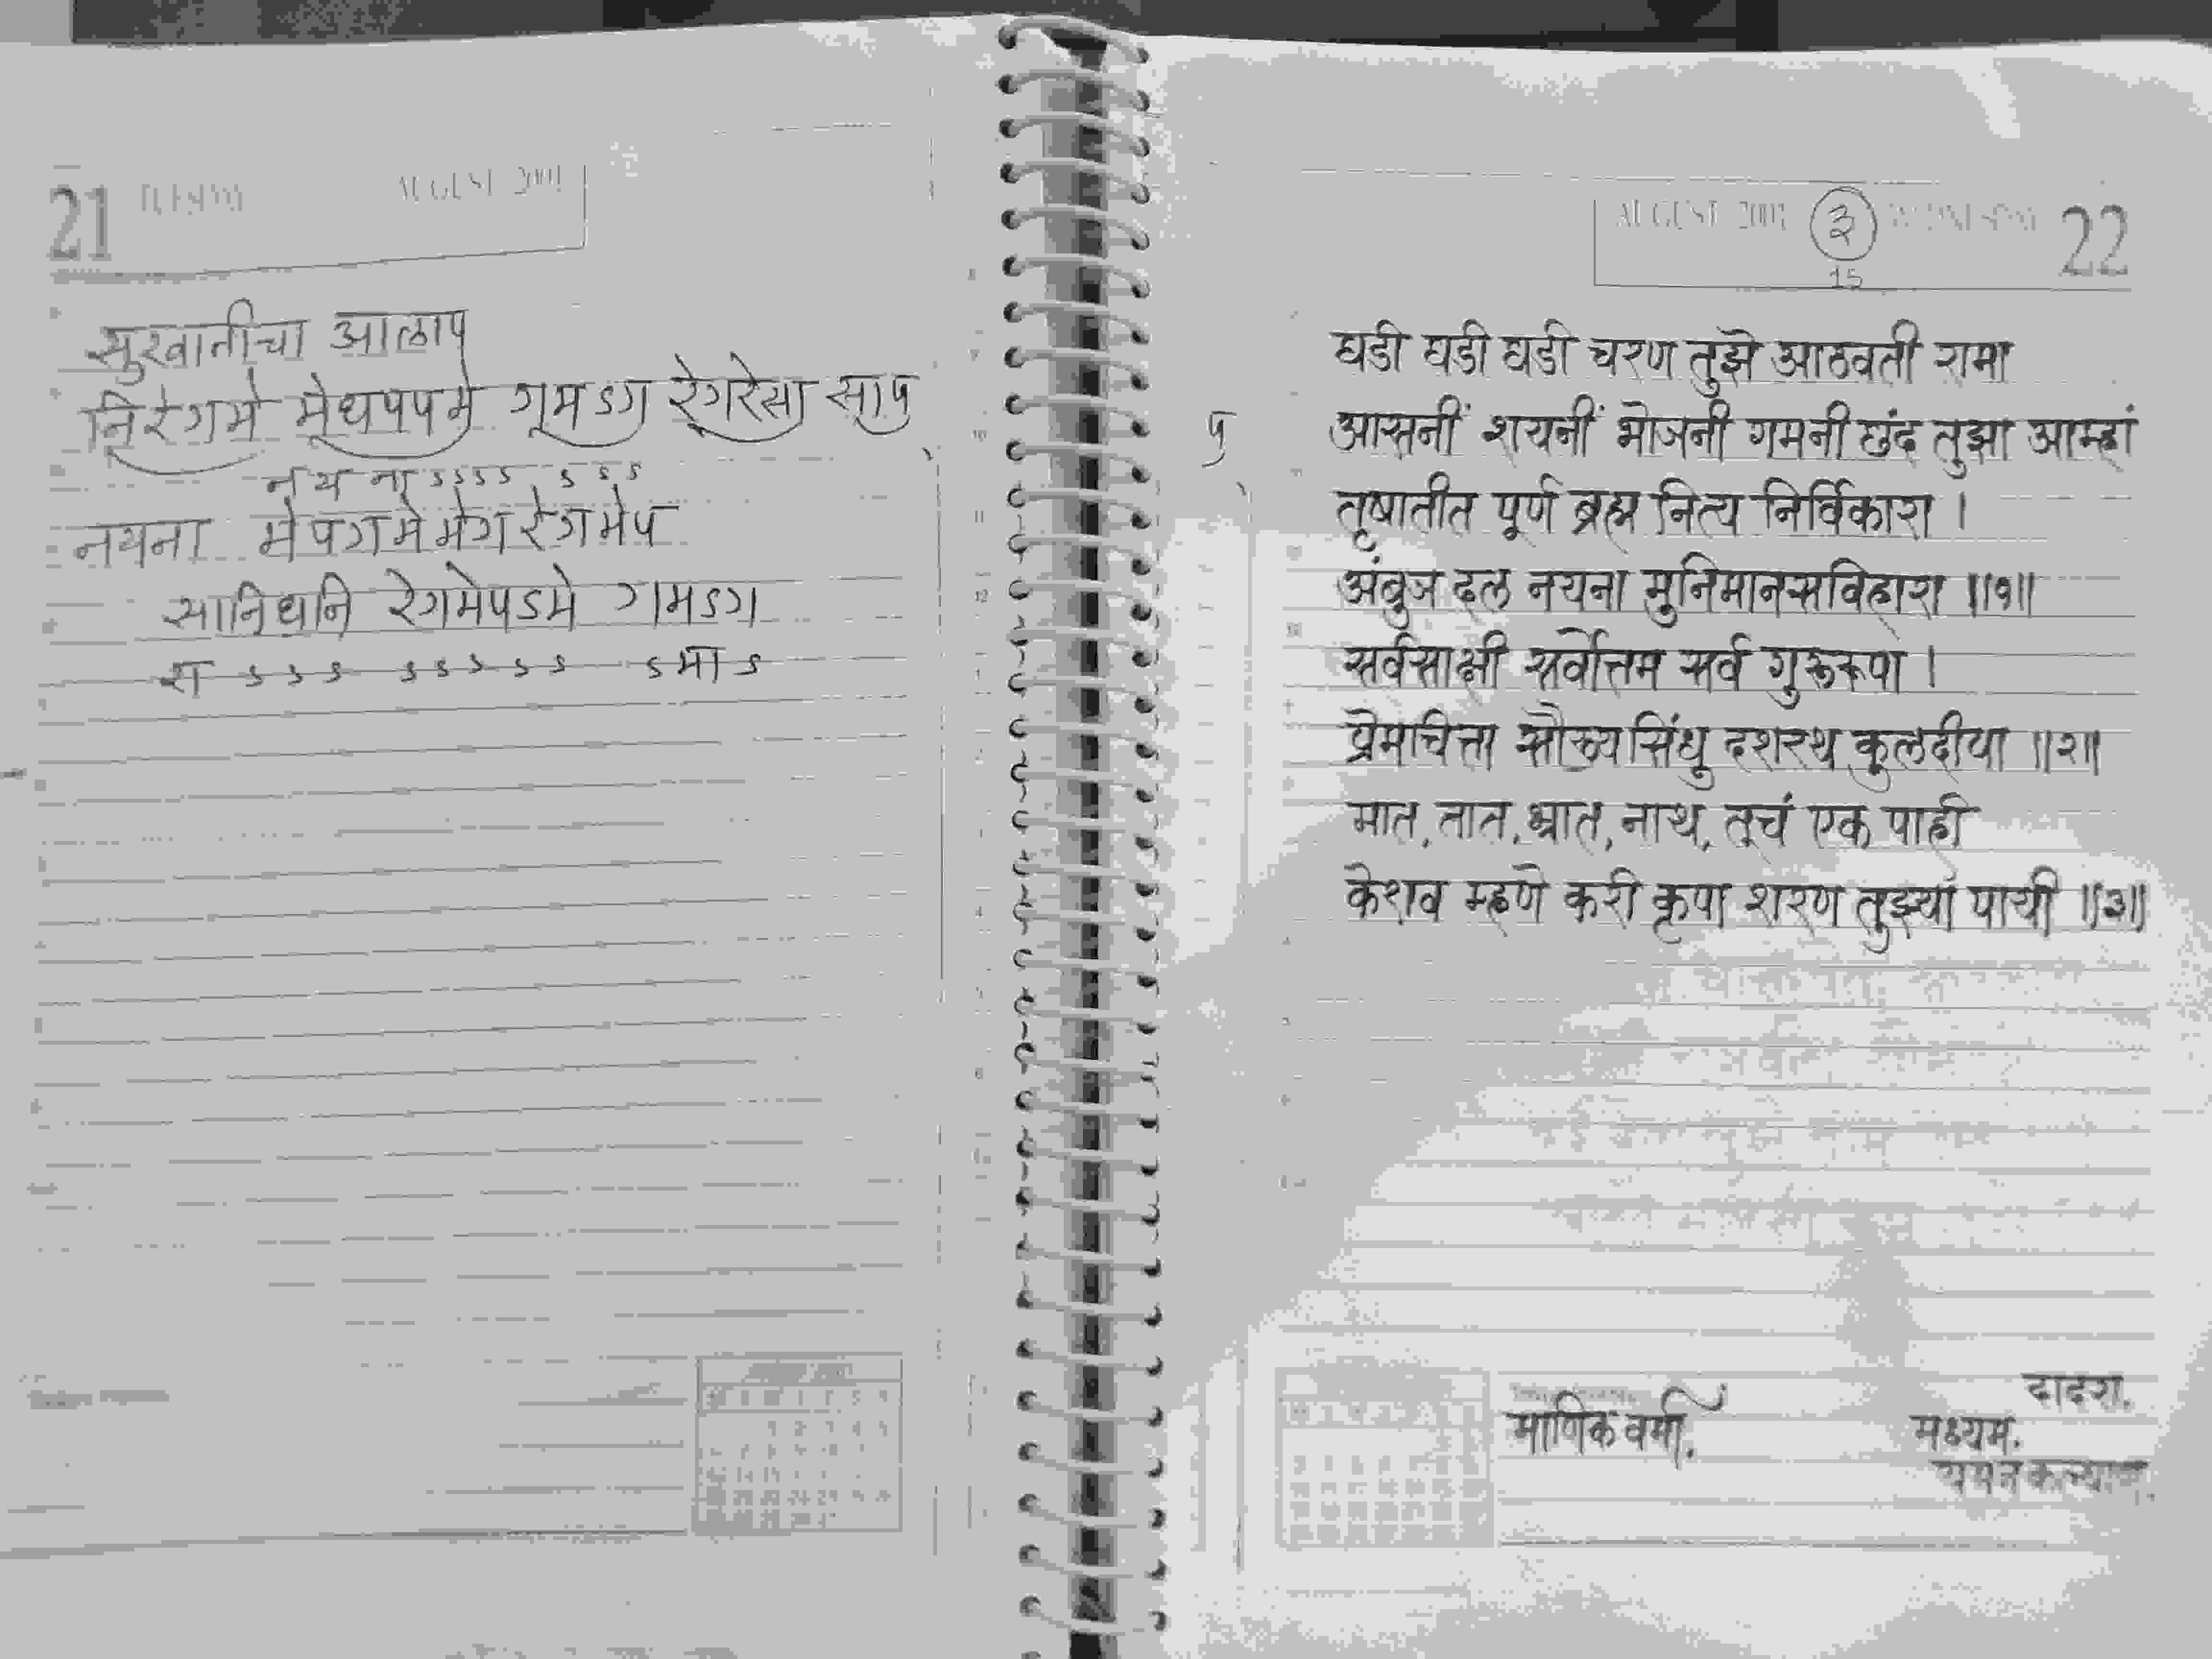 21 TUESDAY AUGUST 2001
सुरवातीचा आलाप
निरेगमे मेधपपमे गमऽग रेगरेसा साप
नयनाऽऽऽऽ ऽऽऽ
नयना मेपगमेमेगरेगमेप
सानिधनि रेगमेपऽमे गमऽग
रा ऽऽऽ ऽऽऽऽऽ ऽमाऽ
AUGUST 2001 ३ WEDNESDAY 22
15
घडी घडी घडी चरण तुझे आठवती रामा
प आसनीं शयनीं भोजनी गमनी छंद तुझा आम्हां
तृषातीत पूर्ण ब्रह्म नित्य निर्विकारा ।
अंबुज दल नयना मुनिमानसविहारा ॥१॥
सर्वसाक्षी सर्वोत्तम सर्व गुरुरूपा ।
प्रेमचित्ता सौख्यसिंधु दशरथ कुलदीपा ॥२॥
मात, तात, भ्रात, नाथ, तूचं एक पाही
केशव म्हणे करी कृपा शरण तुझ्यां पायी ॥३॥
दादरा.
माणिक वर्मा. मध्यम.
यमन कल्याण.